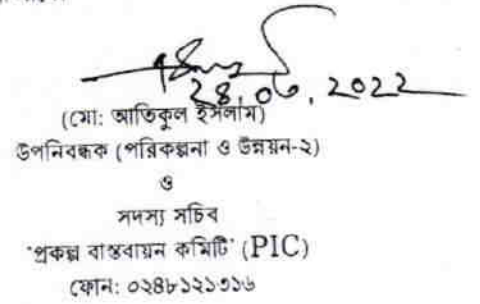 ২৪.০৬.2022
(মো: আতিকুল ইসলাম)
উপনিবন্ধক (পরিকল্পনা ও উন্নয়ন-২)
ও
সদস্য সচিব
'প্রকল্প বাস্তবায়ন কমিটি' (PIC)
ফোন: ০২৪৮১২১৩১৬